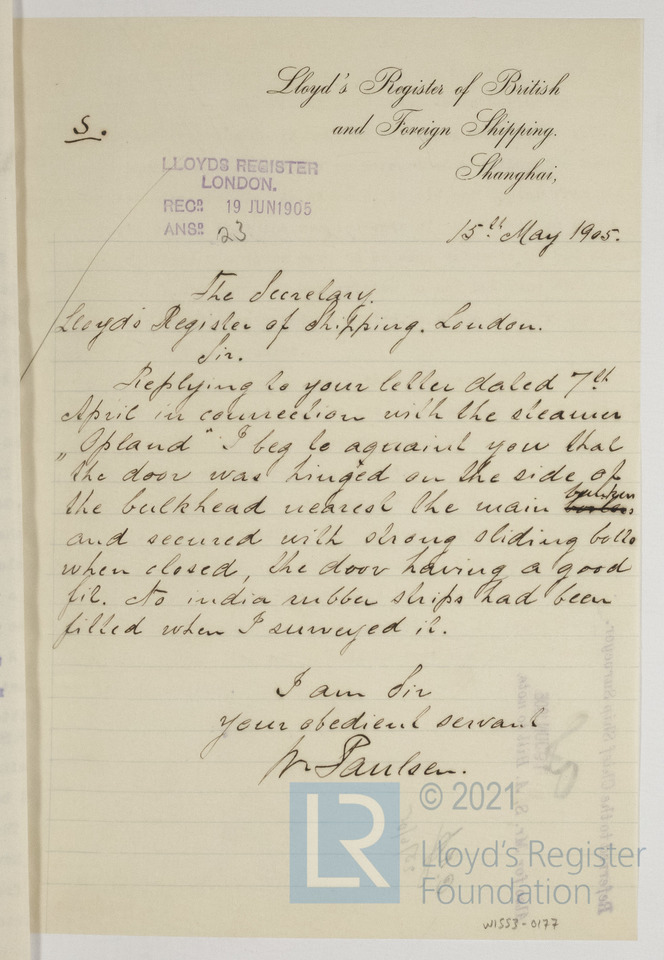 Lloyd's Register of British
and Foreign Shipping.
Shanghai,
S.
LLOYDS REGISTER
LONDON.
RECD. 19 JUN 1905
ANSD. 23
15th May 1905.
The Secretary.
Lloyd's Register of Shipping. London.
Sir.
Replying to your letter dated 7th
April in connection with the steamer
„Opland“ I beg to aquaint you that
the door was hinged on the side of
the bulkhead nearest the main
and secured with strong sliding bolts
when closed, the door having a good
fit. No india rubber strips had been
fitted when I surveyed it.
I am Sir
your obedient servant
W Paulsen.
© 2021
LR
Lloyd's Register
Foundation
W1553-0177